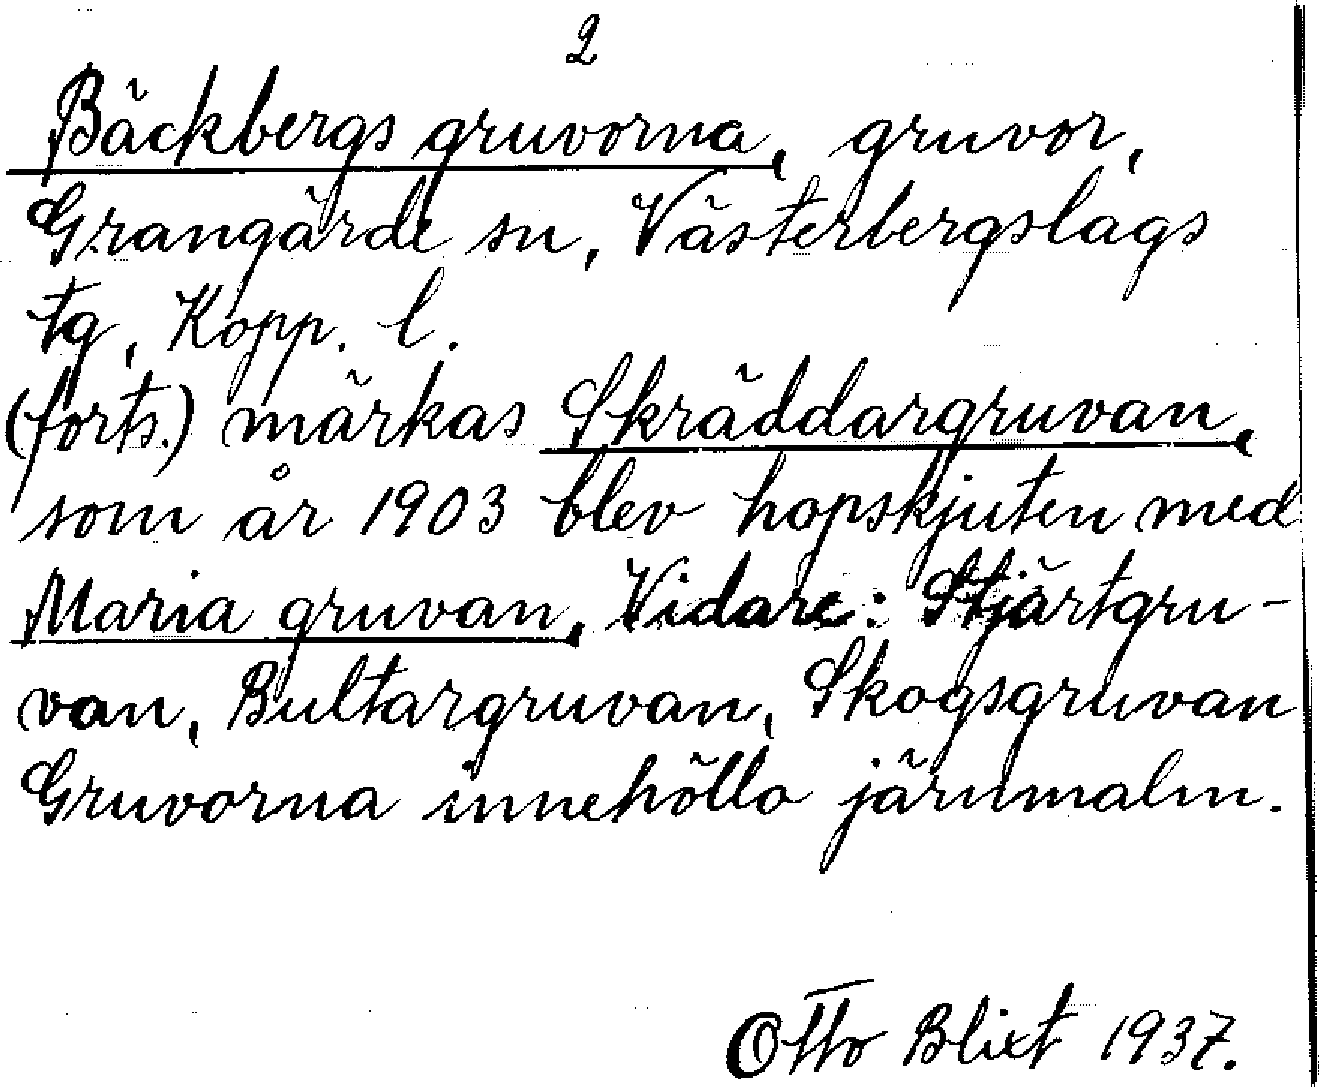 2
Bäckbergs gruvorna, gruvor,
Grangärde sn, Västerbergslags
tg, Kopp. l.
(forts.) märkas Skräddargruvan,
som år 1903 blev hopskjuten med
Maria gruvan. Vidare: Stjärtgru-
van, Bultargruvan, Skogsgruvan
Gruvorna innehöllo järnmalm.
Otto Blixt 1937.